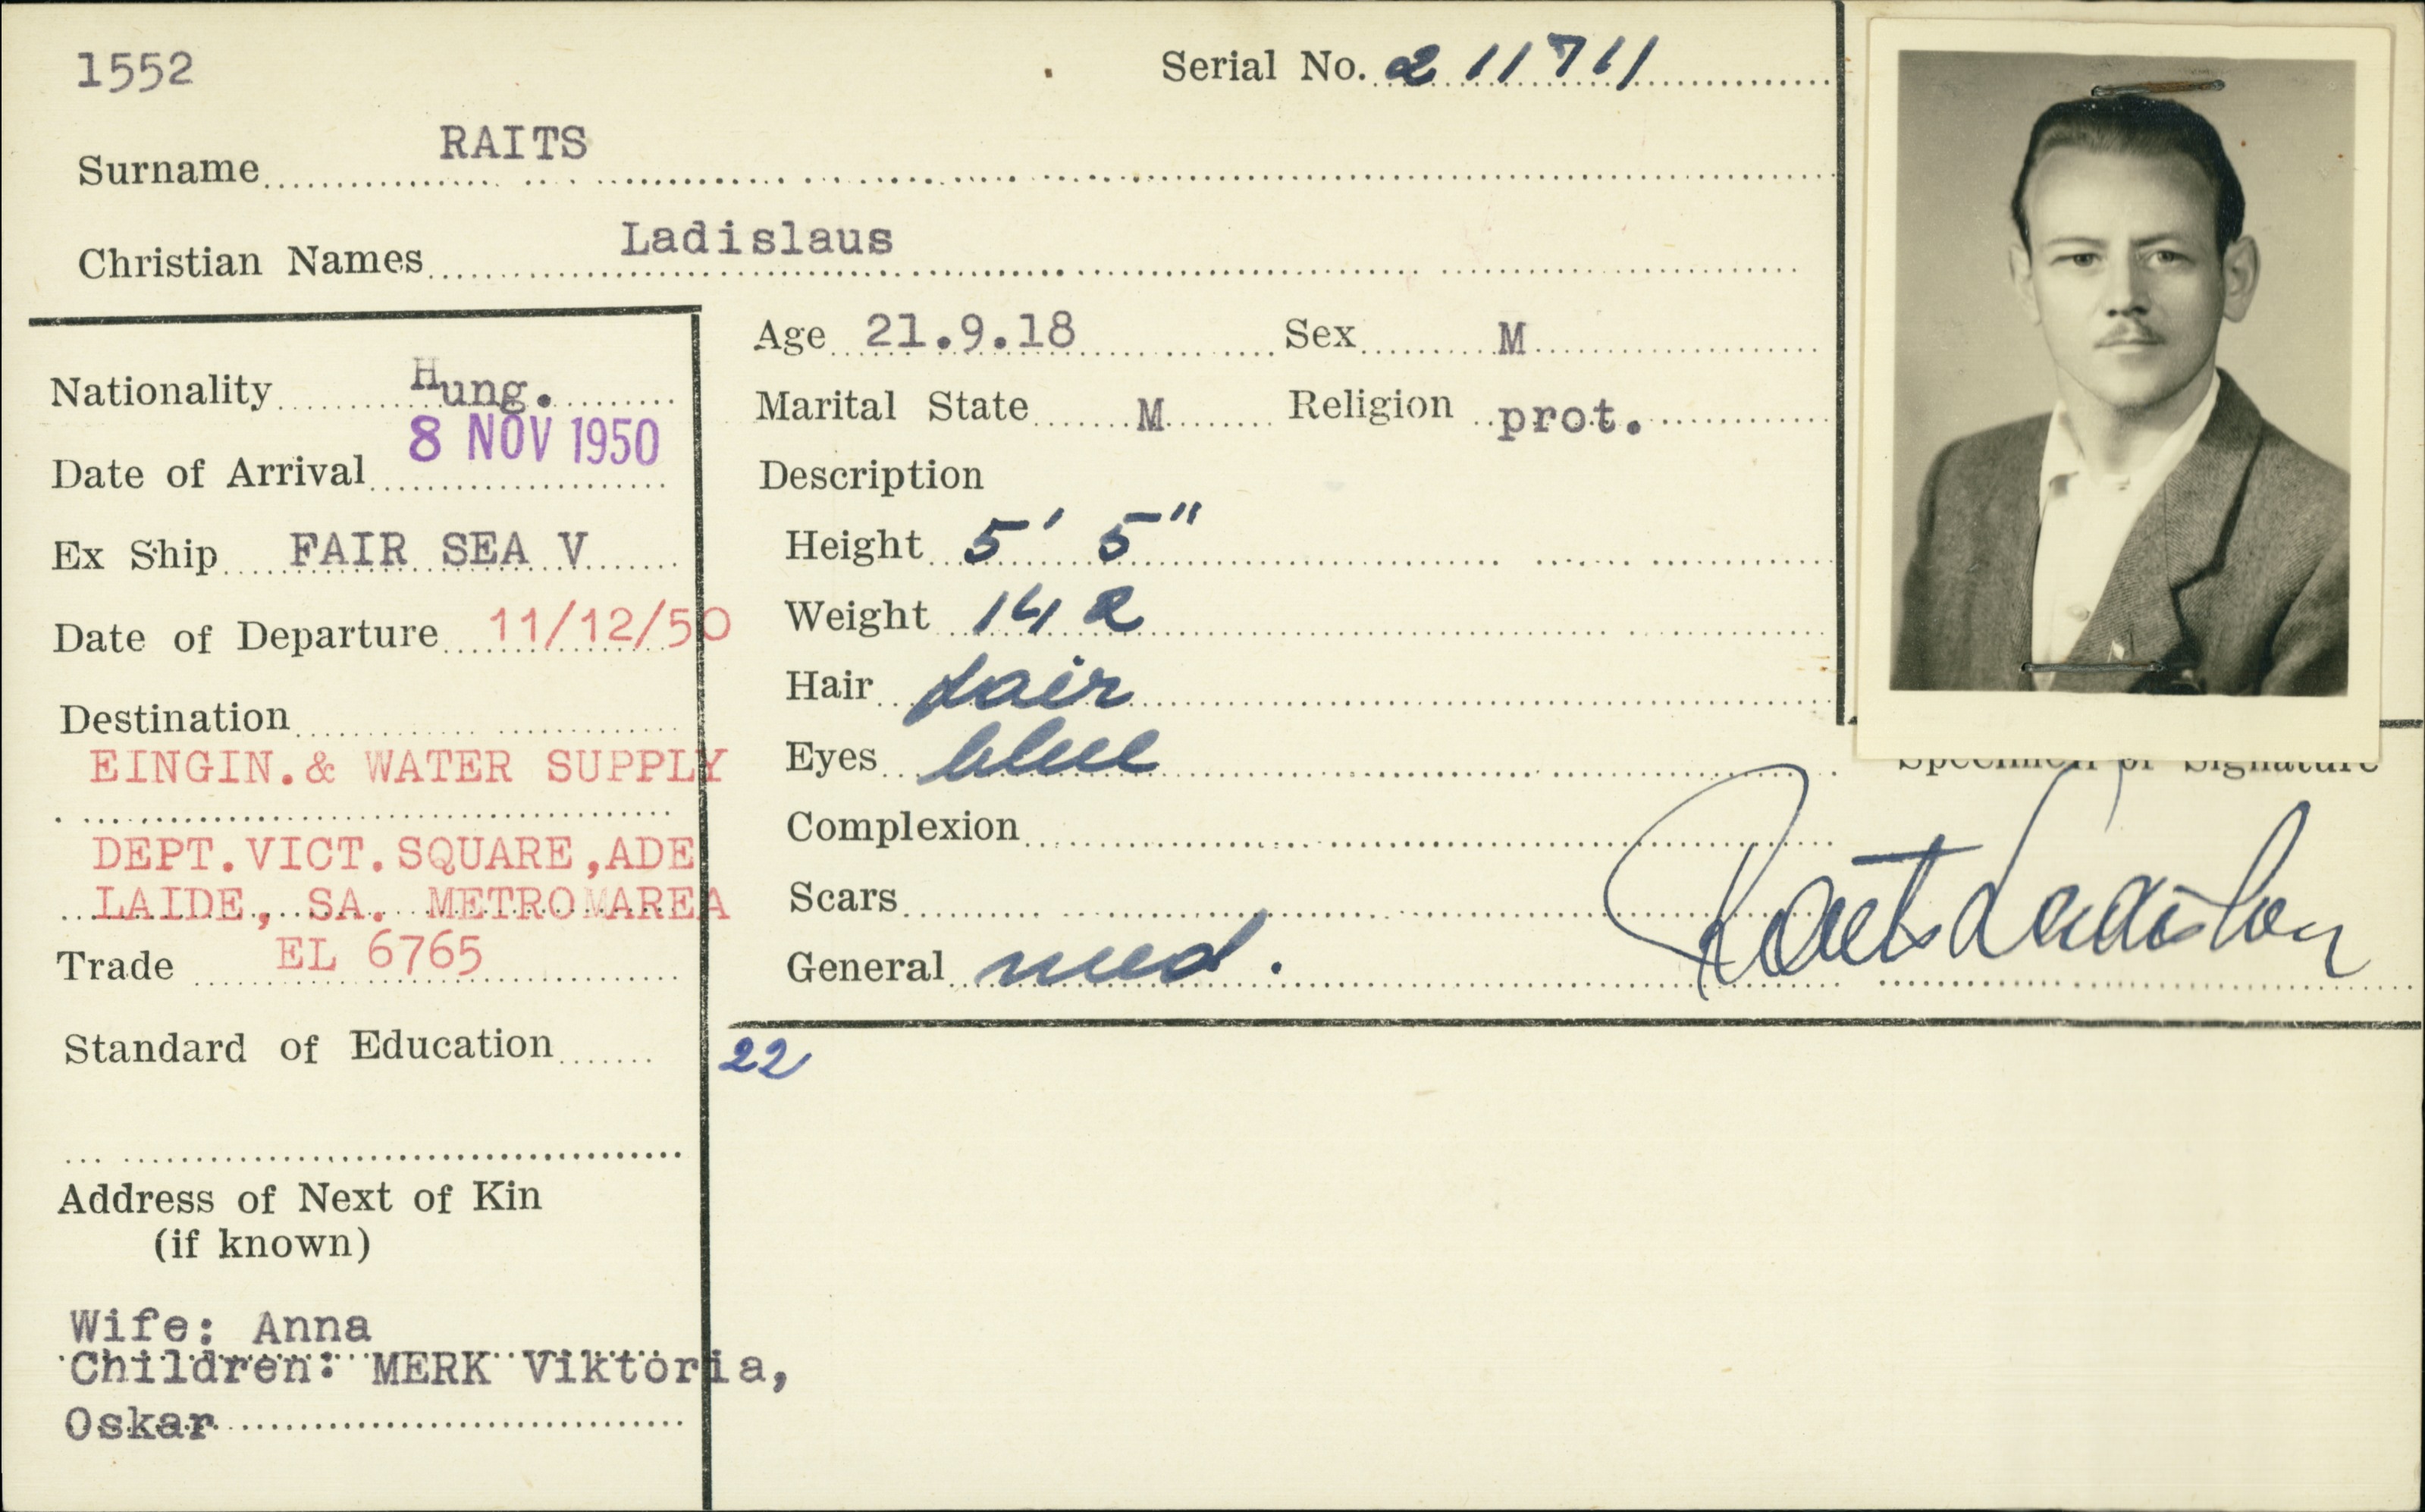 1552
Serial No. 211711
Surname RAITS
Christian Names Ladislaus
Nationality Hung.
Date of Arrival 8 NOV 1950
Ex Ship FAIR SEA V
Date of Departure 11/12/50
Destination
EINGIN.& WATER SUPPLY
DEPT.VICT.SQUARE,ADE
LAIDE, SA. METROMAREA
EL 6765
Trade
Standard of Education
Address of Next of Kin
(if known)
Wife: Anna
Children: MERK Viktoria,
Oskar
Age 21.9.18 Sex M
Marital State M Religion prot.
Description
Height 5' 5"
Weight 142
Hair fair
Eyes blue
Complexion
Scars
General med.
Specimen of Signature
Raits Ladislau
22